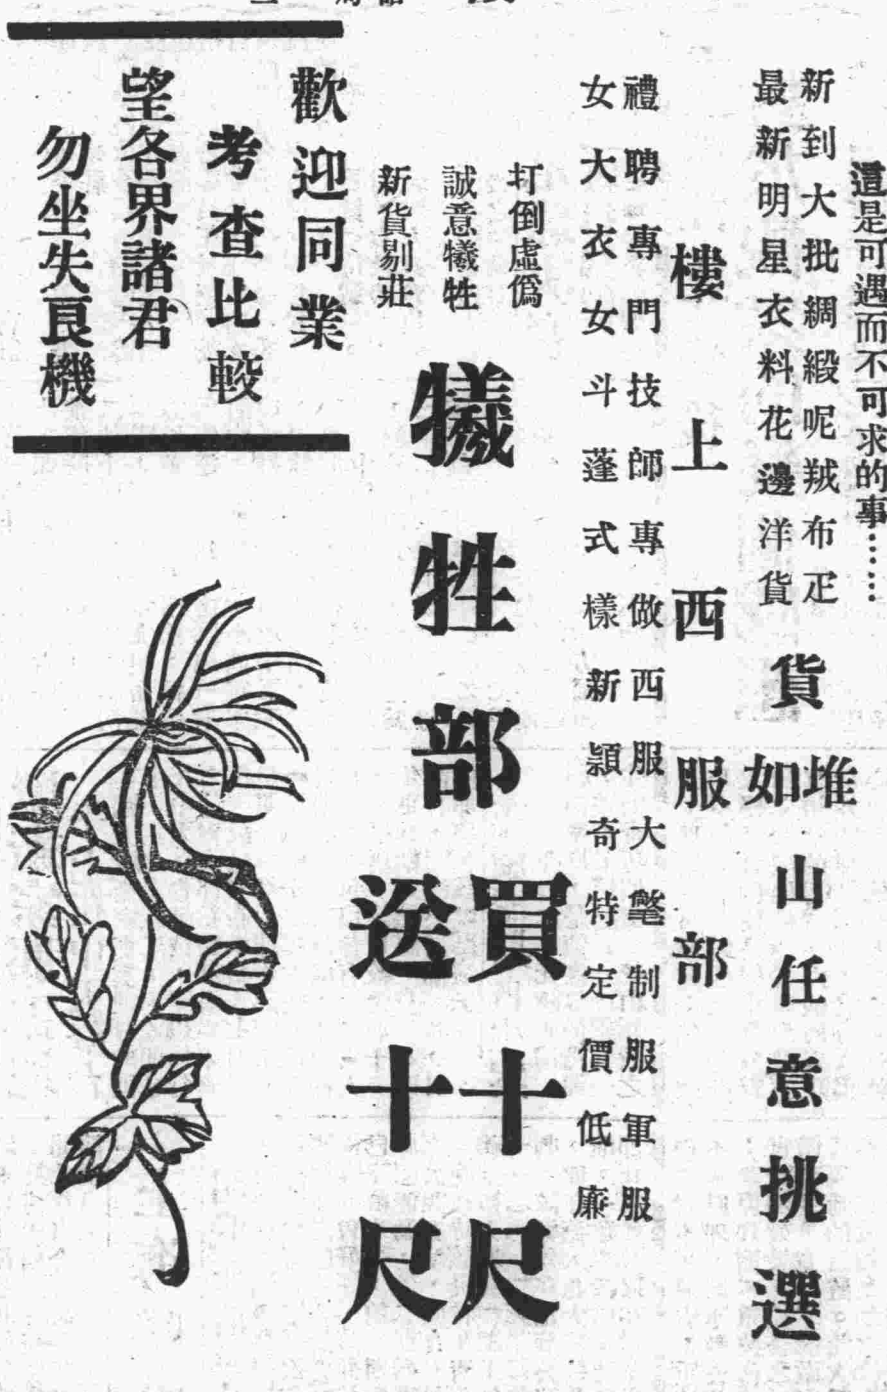 這是可遇而不可求的事……
新到大批綢緞呢羢布疋
最新明星衣料花邊洋貨
貨堆如山任意挑選
樓上西服部
禮聘專門技師專做西服大氅制服軍服
女大衣女斗蓬式樣新頴奇特定價低廉
打倒虛僞
誠意犧牲
新貨剔莊
犧牲部
買十尺
送十尺
歡迎同業
考查比較
望各界諸君
勿坐失良機